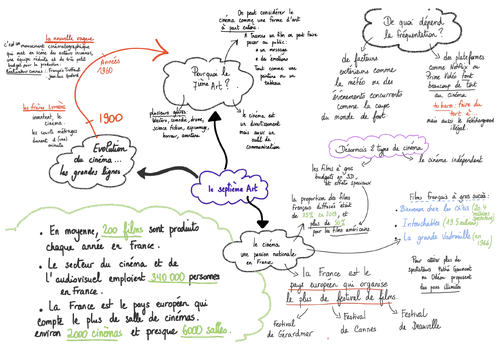 la nouvelle vague
c'est un mouvement cinématographique
qui met en scène des acteurs inconnus,
une équipe réduite et de très petit
budget pour la production.
réalisateur connus : François Truffaut
Jean-Luc Godard
Années
1960
les frères lumière
inventent, le
cinéma.
les courts métrages
durent 1 (une)
minute
1900
Evolution
du cinéma...
les grandes lignes
On peut considérer le
cinéma comme une forme d'art
à part entière :
A travers un film on peut faire
passer au public :
• un message
• des émotions
Tout comme une
peinture ou un
tableau
Pourquoi le
7ième Art ?
plusieurs genres
science fiction, espionnage,
horreur, aventure
le cinéma est
un divertissement
mais aussi un
outil de
communication
le septième Art
De quoi dépend
la fréquentation ?
de facteurs
extérieurs comme
la météo ou des
évènements concurrents
comme la coupe
du monde de foot
des plateformes
comme Netflix ou
Prime Vidéo font
beaucoup de tort
au cinéma
mais aussi le téléchargement
illégal.
Désormais 2 types de cinéma
les films à gros
budget en 3D,
et effets spéciaux
le cinéma indépendant
la proportion des films
Français diffusé était
de 35% en 2019, et
plus de 50%
pour les films américains.
le cinéma
une passion nationale
en France
Films français à gros succès :
• Bienvenue chez les Ch'tis
• Intouchables (19.5 millions)
• La grande Vadrouille (en 1966)
Pour attirer plus de
spectateurs Pathé Gaumont
ou Odéon proposent
des pass illimités
la France est le
pays européen qui organise
le plus de festival de films.
Festival
de Gérardmer
Festival
de Cannes
Festival
de Deauville
• En moyenne, 200 films sont produits
chaque année en France.
• Le secteur du cinéma et de
l'audiovisuel emploient 340 000 personnes
en France.
• La France est le pays européen qui
compte le plus de salle de cinémas.
environ 2000 cinémas et presque 6000 salles.